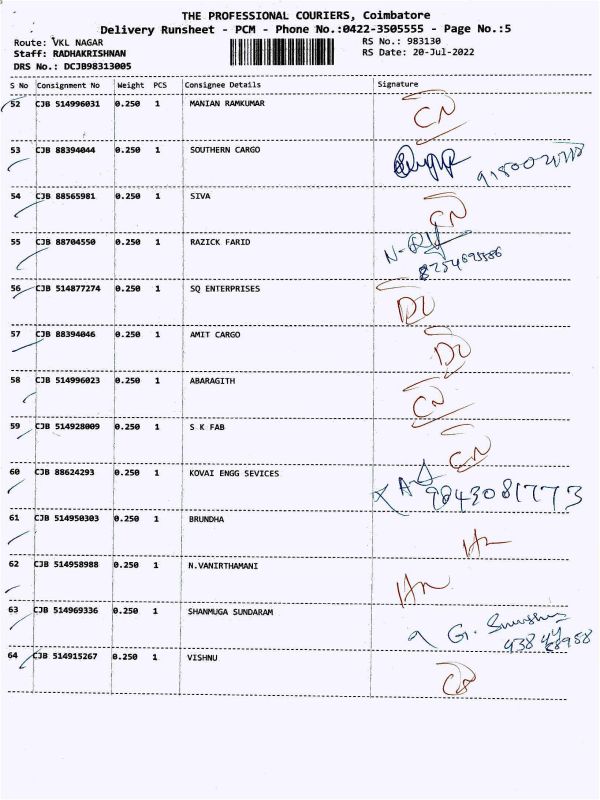 THE PROFESSIONAL COURIERS, Coimbatore
Delivery Runsheet - PCM - Phone No.:0422-3505555 - Page No.:5
Route: VKL NAGAR RS No.: 983130
Staff: RADHAKRISHNAN RS Date: 20-Jul-2022
DRS No.: DCJB98313005
S No Consignment No Weight PCS Consignee Details Signature
52 CJB 514996031 0.250 1 MANIAN RAMKUMAR CN
53 CJB 88394044 0.250 1 SOUTHERN CARGO
54 CJB 88565981 0.250 1 SIVA CN
55 CJB 88704550 0.250 1 RAZICK FARID
56 CJB 514877274 0.250 1 SQ ENTERPRISES DL
57 CJB 88394046 0.250 1 AMIT CARGO DL
58 CJB 514996023 0.250 1 ABARAGITH CN
59 CJB 514928009 0.250 1 S K FAB CN
60 CJB 88624293 0.250 1 KOVAI ENGG SEVICES 9843081773
61 CJB 514950303 0.250 1 BRUNDHA
62 CJB 514958988 0.250 1 N.VANIRTHAMANI
63 CJB 514969336 0.250 1 SHANMUGA SUNDARAM
64 CJB 514915267 0.250 1 VISHNU